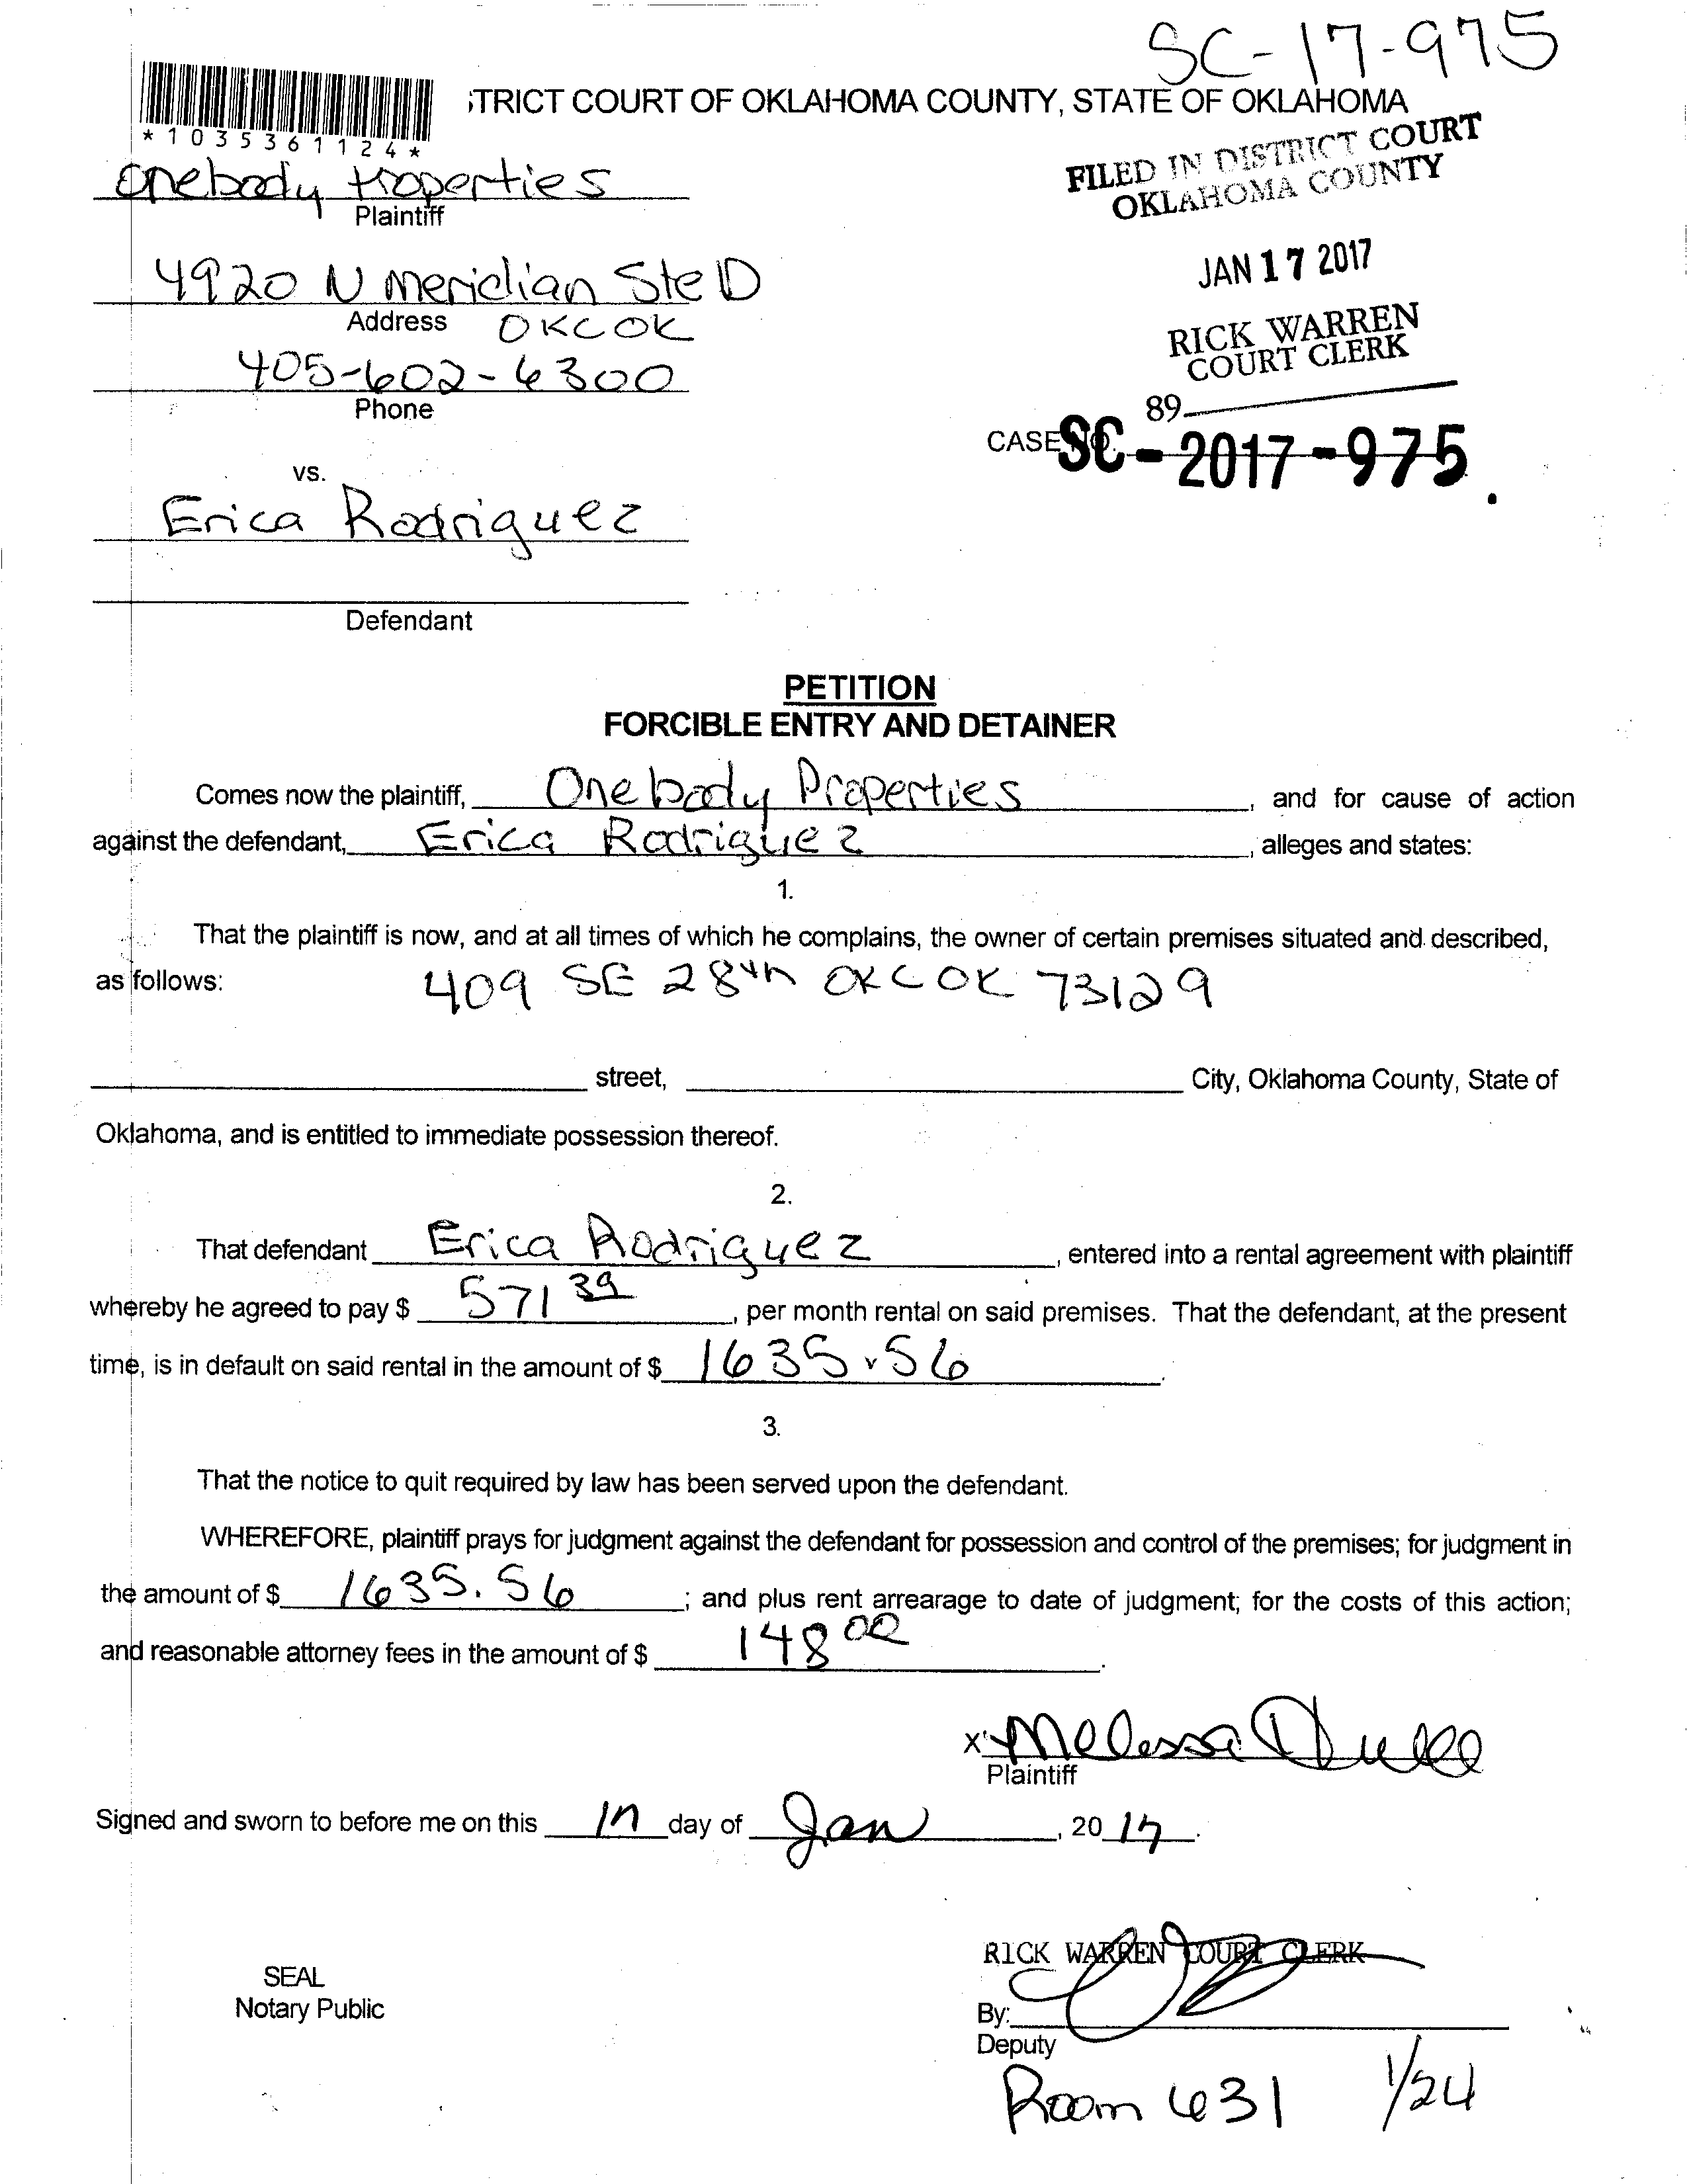 SC-17-975
STRICT COURT OF OKLAHOMA COUNTY, STATE OF OKLAHOMA
*1035361124*
FILED IN DISTRICT COURT
OKLAHOMA COUNTY
Onebody Properties
Plaintiff
JAN 17 2017
4920 N Meridian Ste D
Address OKC OK
RICK WARREN
COURT CLERK
405-602-6300
Phone
89
CASE NO. SC-2017-975
vs.
Erica Rodriguez
Defendant
PETITION
FORCIBLE ENTRY AND DETAINER
Comes now the plaintiff, Onebody Properties, and for cause of action
against the defendant, Erica Rodriguez, alleges and states:
1.
That the plaintiff is now, and at all times of which he complains, the owner of certain premises situated and described,
as follows: 409 SE 28th OKC OK 73129
street, City, Oklahoma County, State of
Oklahoma, and is entitled to immediate possession thereof.
2.
That defendant Erica Rodriguez, entered into a rental agreement with plaintiff
whereby he agreed to pay $ 571 39, per month rental on said premises. That the defendant, at the present
time, is in default on said rental in the amount of $ 1635.56.
3.
That the notice to quit required by law has been served upon the defendant.
WHEREFORE, plaintiff prays for judgment against the defendant for possession and control of the premises; for judgment in
the amount of $ 1635.56; and plus rent arrearage to date of judgment; for the costs of this action;
and reasonable attorney fees in the amount of $ 148 00.
X Melessa
Plaintiff
Signed and sworn to before me on this 17 day of Jan, 20 17.
RICK WARREN COURT CLERK
SEAL
Notary Public
By:
Deputy
Room 631 1/24